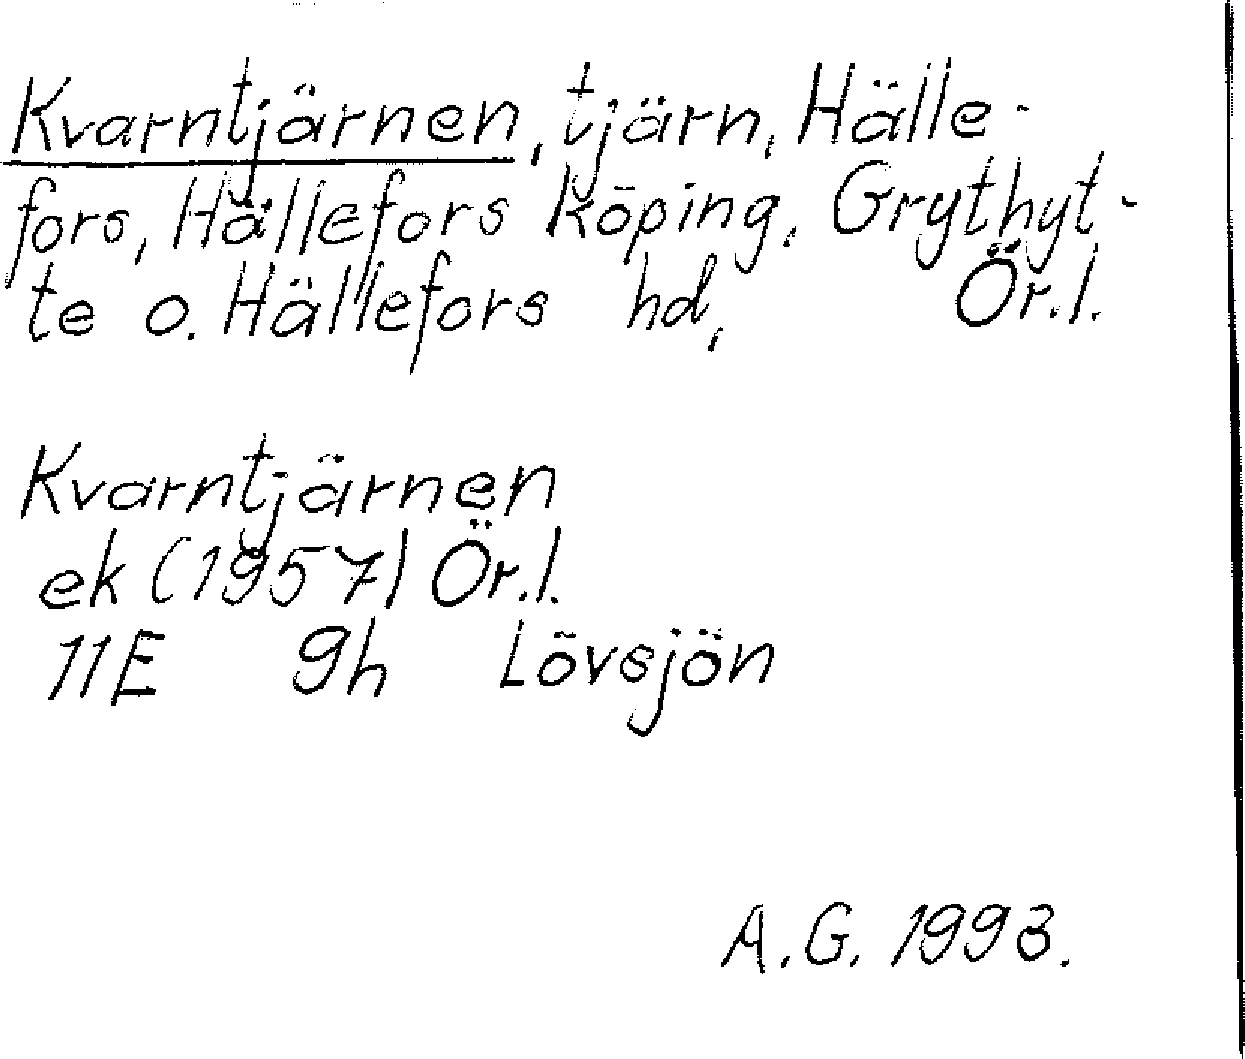 Kvarntjärnen, tjärn, Hälle-
fors, Hällefors köping, Grythyt-
te o. Hällefors hd, Ör.l.
Kvarntjärnen
ek (1957) Ör.l.
11E 9h Lövsjön
A.G. 1993.